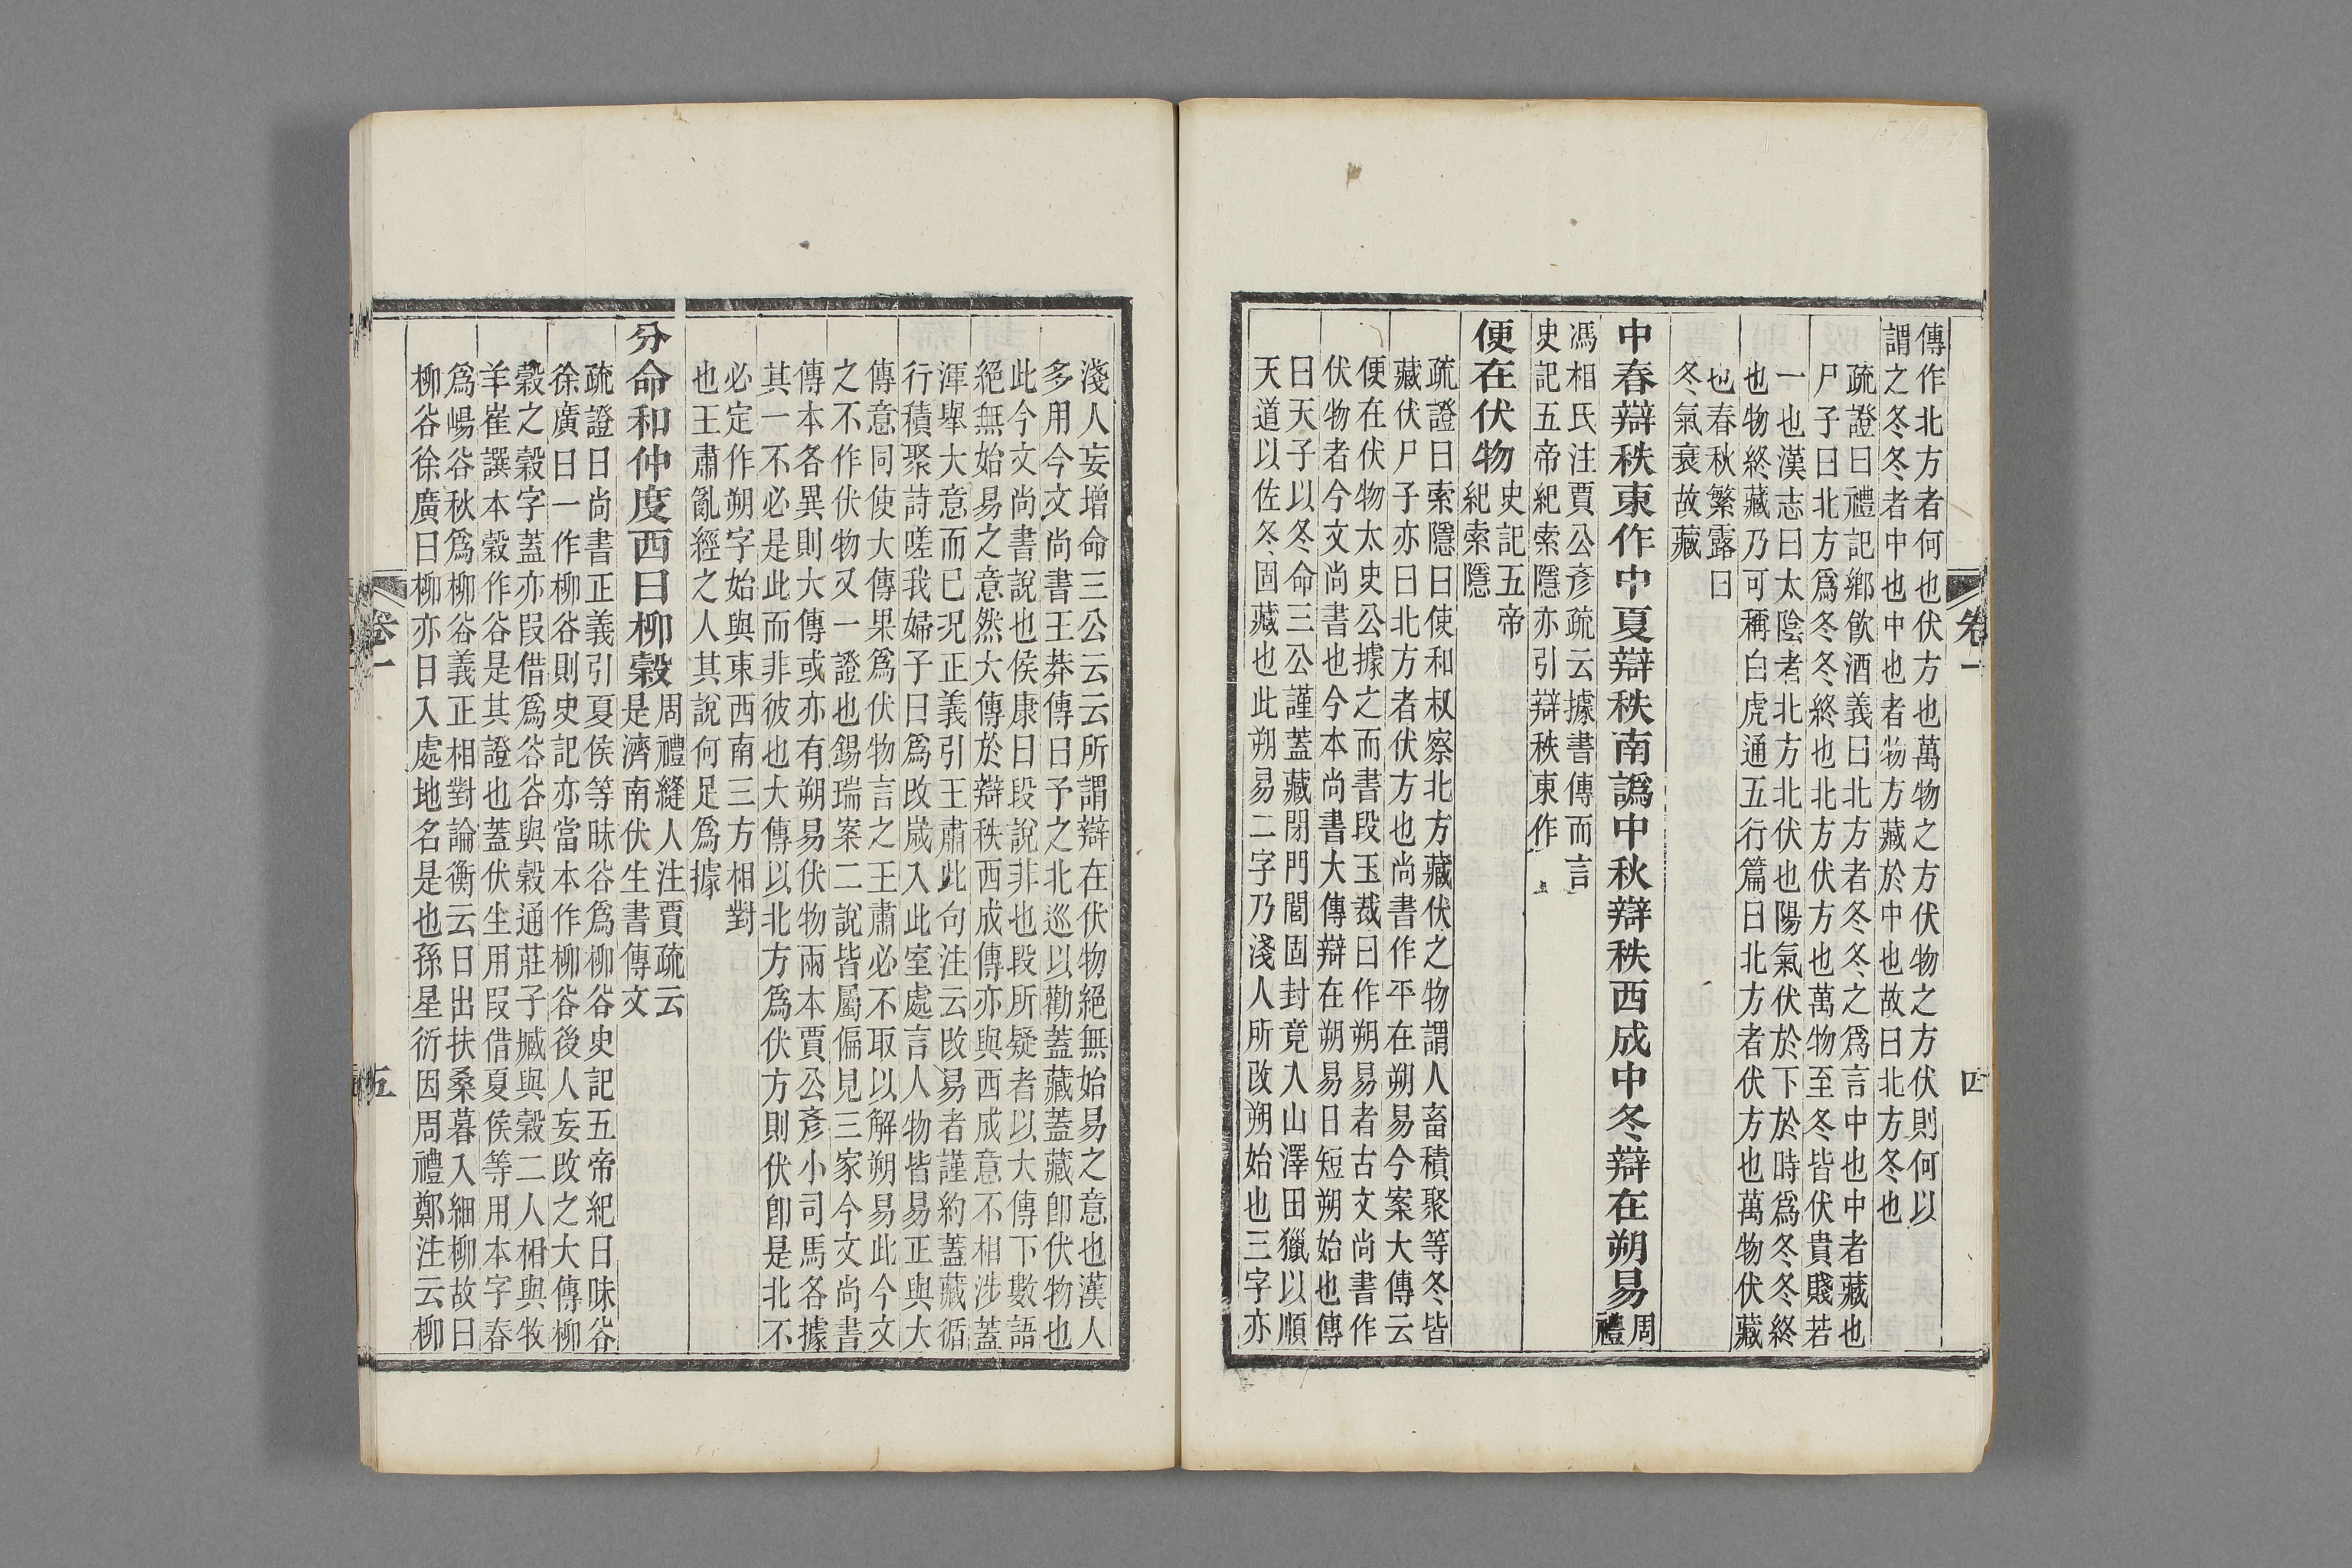 傳作北方者何也伏方也萬物之方伏物之方伏則何以
謂之冬冬者中也中也者物方藏於中也故曰北方冬也
疏證曰禮記鄉飲酒義曰北方者冬冬之爲言中也中者藏也
尸子曰北方爲冬冬終也北方伏方也萬物至冬皆伏貴賤若
一也漢志曰太陰者北方北伏也陽氣伏於下於時爲冬冬終
也物終藏乃可稱白虎通五行篇曰北方者伏方也萬物伏藏
也春秋繁露曰
冬氣衰故藏
中春辯秩東作中夏辯秩南譌中秋辯秩西成中冬辯在朔易周
禮
馮相氏注賈公彥疏云據書傳而言
史記五帝紀索隱亦引辯秩東作
便在伏物史記五帝
紀索隱
疏證曰索隱曰使和叔察北方藏伏之物謂人畜積聚等冬皆
藏伏尸子亦曰北方者伏方也尚書作平在朔易今案大傳云
便在伏物太史公據之而書段玉裁曰作朔易者古文尚書作
伏物者今文尚書也今本尚書大傳辯在朔易日短朔始也傳
曰天子以冬命三公謹蓋藏閉門閭固封竟入山澤田獵以順
天道以佐冬固藏也此朔易二字乃淺人所改朔始也三字亦
卷一
四
淺人妄增命三公云云所謂辯在伏物絕無始易之意也漢人
多用今文尚書王莽傳曰予之北巡以勸蓋藏蓋藏卽伏物也
此今文尚書說也侯康曰段說非也段所疑者以大傳下數語
絕無始易之意然大傳於辯秩西成傳亦與西成意不相涉蓋
渾舉大意而已況正義引王肅此句注云改易者謹約蓋藏循
行積聚詩嗟我婦子曰爲改歲入此室處言人物皆易正與大
傳意同使大傳果爲伏物言之王肅必不取以解朔易此今文
之不作伏物又一證也錫瑞案二說皆屬偏見三家今文尚書
傳本各異則大傳或亦有朔易伏物兩本賈公彥小司馬各據
其一不必是此而非彼也大傳以北方爲伏方則伏卽是北不
必定作朔字始與東西南三方相對
也王肅亂經之人其說何足爲據
分命和仲度西曰柳穀周禮縫人注賈疏云
是濟南伏生書傳文
疏證曰尚書正義引夏侯等昧谷爲柳谷史記五帝紀曰昧谷
徐廣曰一作柳谷則史記亦當本作柳谷後人妄改之大傳柳
穀之穀字蓋亦叚借爲谷谷與穀通莊子臧與穀二人相與牧
羊崔譔本穀作谷是其證也蓋伏生用叚借夏侯等用本字春
爲崵谷秋爲柳谷義正相對論衡云日出扶桑暮入細柳故曰
柳谷徐廣曰柳亦日入處地名是也孫星衍因周禮鄭注云柳
卷一
五